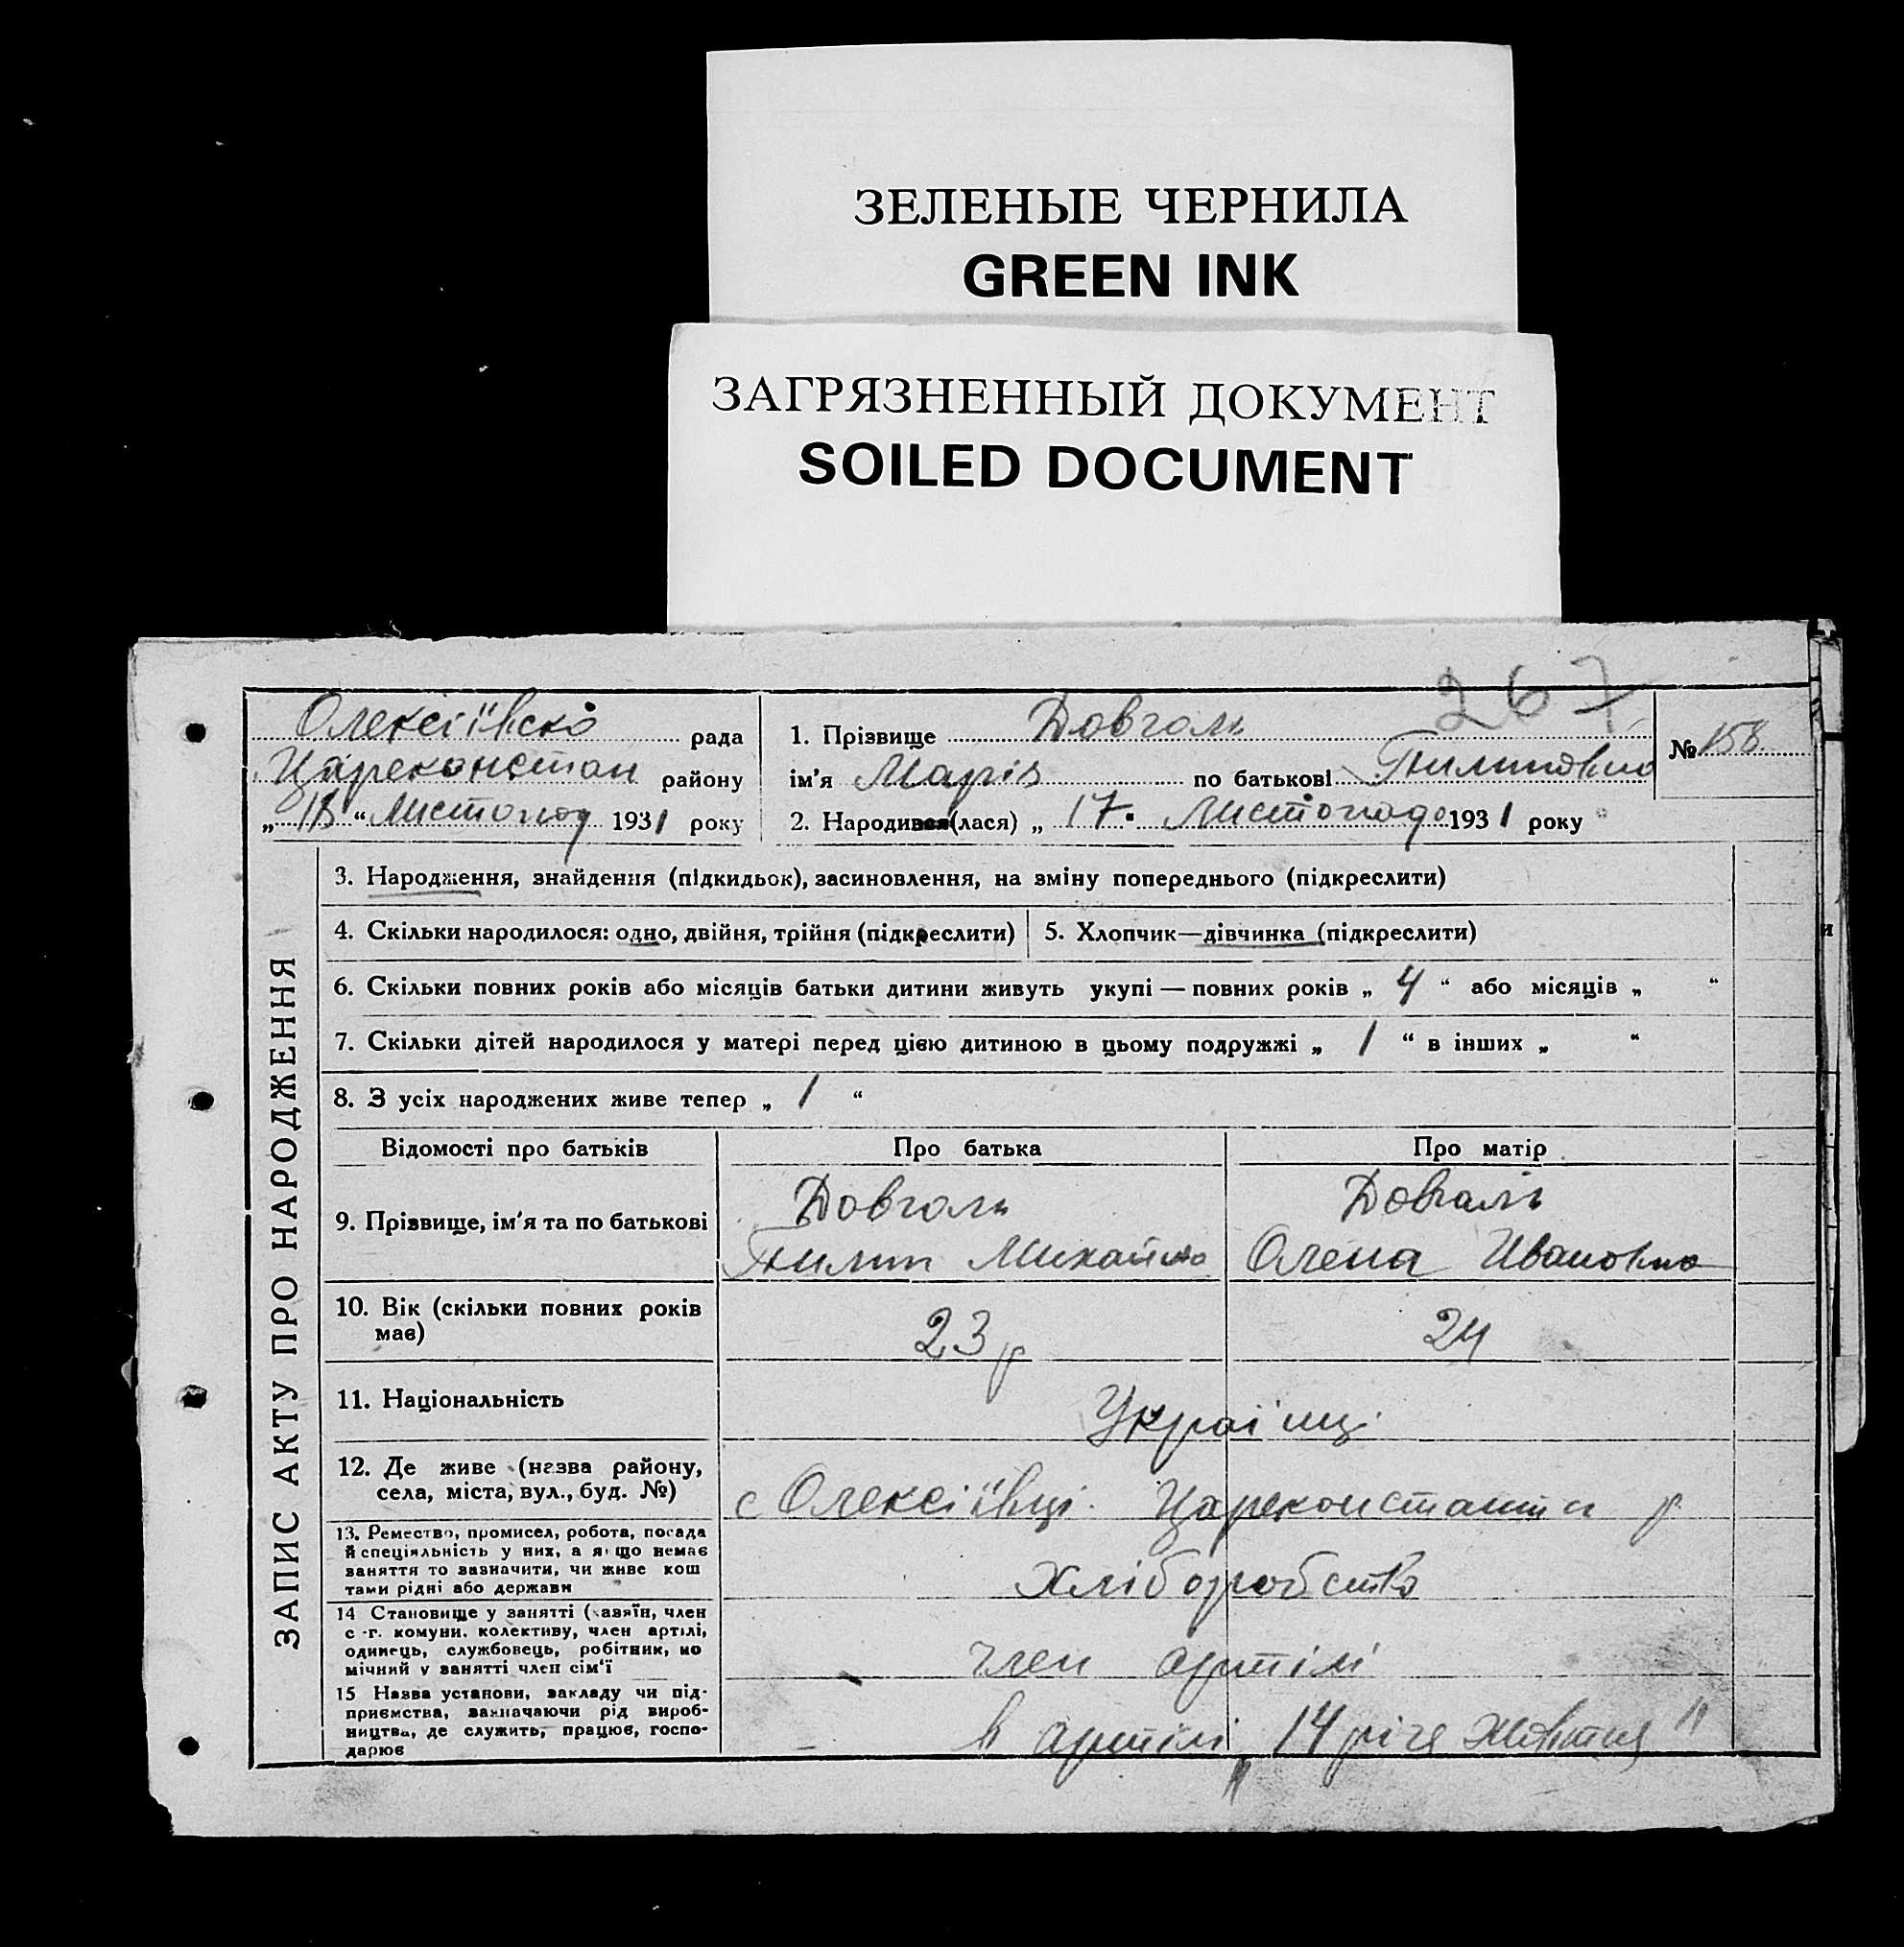 ЗЕЛЕНЫЕ ЧЕРНИЛА
GREEN INK
ЗАГРЯЗНЕННЫЙ ДОКУМЕНТ
SOILED DOCUMENT
267
Олексіївска рада
Цареконстан району
„18“ Листопад 1931 року
1. Прізвище Довгаль
ім'я Марія по батькові Пилиповна
№ 158
2. Народився(лася) „17“ Листопада 1931 року
ЗАПИС АКТУ ПРО НАРОДЖЕННЯ
3. Народження, знайдення (підкидьок), засиновлення, на зміну попереднього (підкреслити)
4. Скільки народилося: одно, двійня, трійня (підкреслити)
5. Хлопчик—дівчинка (підкреслити)
6. Скільки повних років або місяців батьки дитини живуть укупі — повних років „ 4 “ або місяців „ “
7. Скільки дітей народилося у матері перед цією дитиною в цьому подружжі „ 1 “ в інших „ “
8. З усіх народжених живе тепер „ 1 “
Відомості про батьків
Про батька
Про матір
9. Прізвище, ім'я та по батькові
Довголь
Пилип
Довгаль
Олена Ивановна
10. Вік (скільки повних років
має)
23 р
24
11. Національність
Українці
12. Де живе (назва району,
села, міста, вул., буд. №)
с Олексіївці Цареконстанти р
13. Ремество, промисел, робота, посада
й спеціяльність у них, а якщо немає
заняття то зазначити, чи живе кош
тами рідні або держави
хліборобство
14 Становище у занятті (хазяїн, член
с -г. комуни, колективу, член артілі,
одинець, службовець, робітник, по
мічний у занятті член сім'ї
член артілі
15 Назва установи, закладу чи під-
приємства, зазначаючи рід вироб-
ництва, де служить, працює, госпо-
дарює
в артілі „14 річя Жовтня"